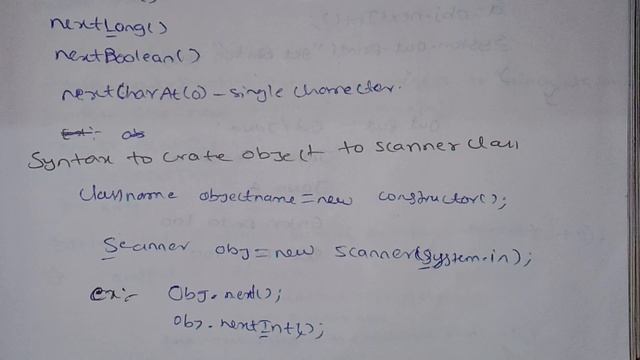 nextLong()
nextBoolean()
nextCharAt(0) - single charecter.
Ex:- ob
Syntax to crate object to scanner class
Classname objectname = new constructor();
Scanner obj = new scanner(System.in);
ex:- Obj.next();
obj.nextInt();